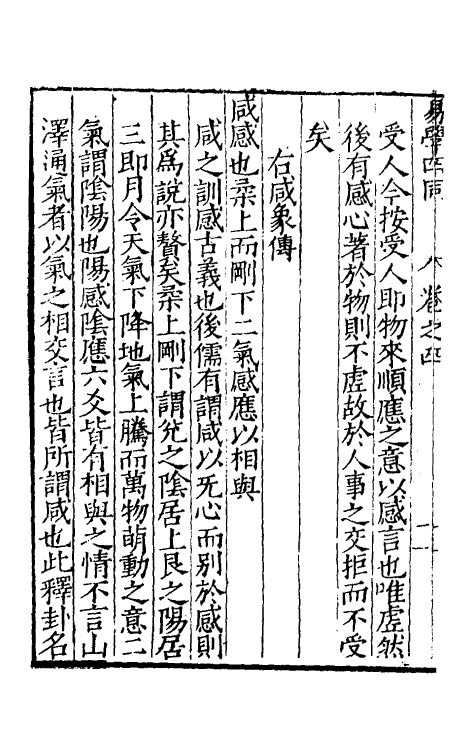 易學四同 卷之四 二
受人今按受人即物來順應之意以感言也唯虛然
後有感心著於物則不虛故於人事之交拒而不受
矣
右咸象傳
咸感也柔上而剛下二氣感應以相與
咸之訓感古義也後儒有謂咸以旡心而别於感則
其為說亦贅矣柔上剛下謂兊之陰居上艮之陽居
三即月令天氣下降地氣上騰而萬物萌動之意二
氣謂陰陽也陽感陰應六爻皆有相與之情不言山
澤通氣者以氣之相交言也皆所謂咸也此釋卦名